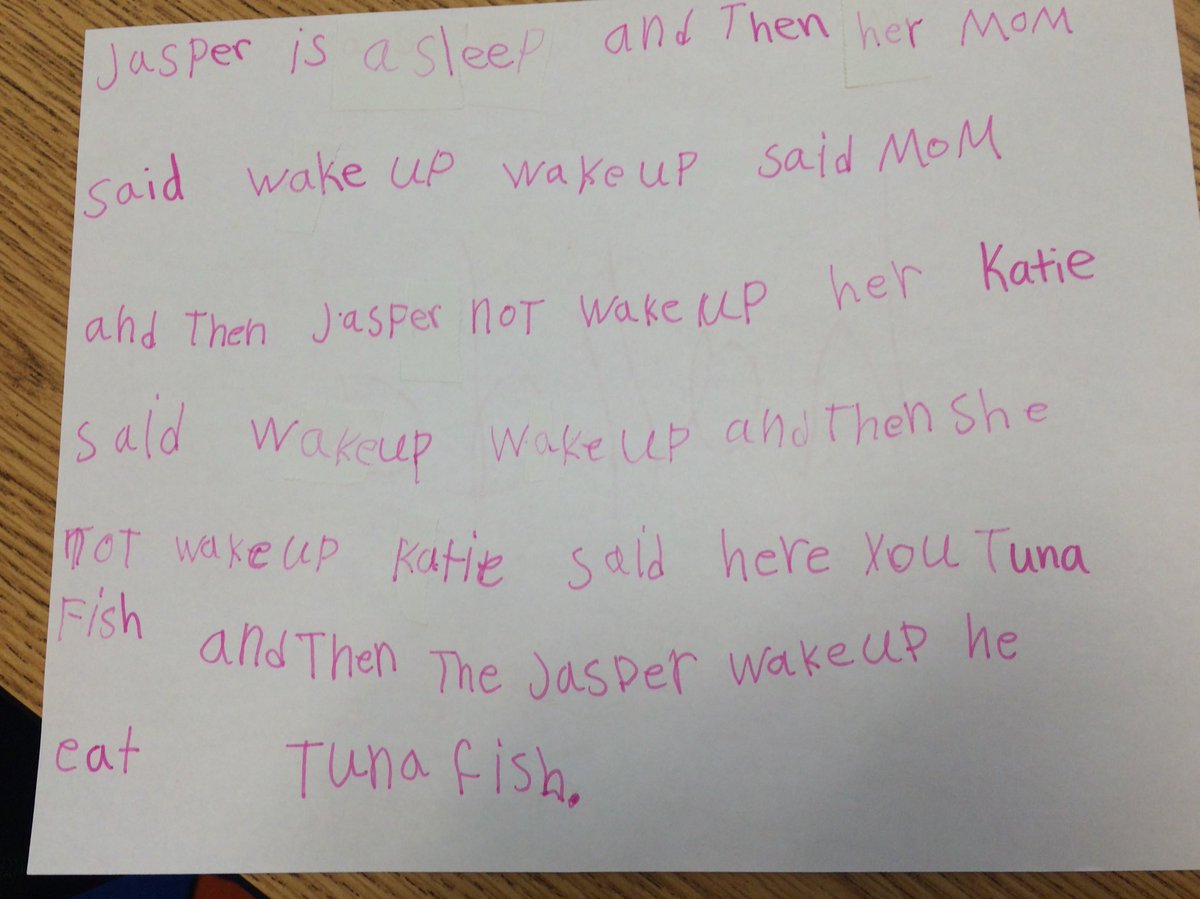 Jasper is a sleep and Then her MoM
said wake up wake up said MoM
and Then Jasper not wake up her Katie
said wakeup wake up and Then She
not wake up Katie said here you Tuna
Fish and Then The Jasper wake up he
eat Tuna fish.